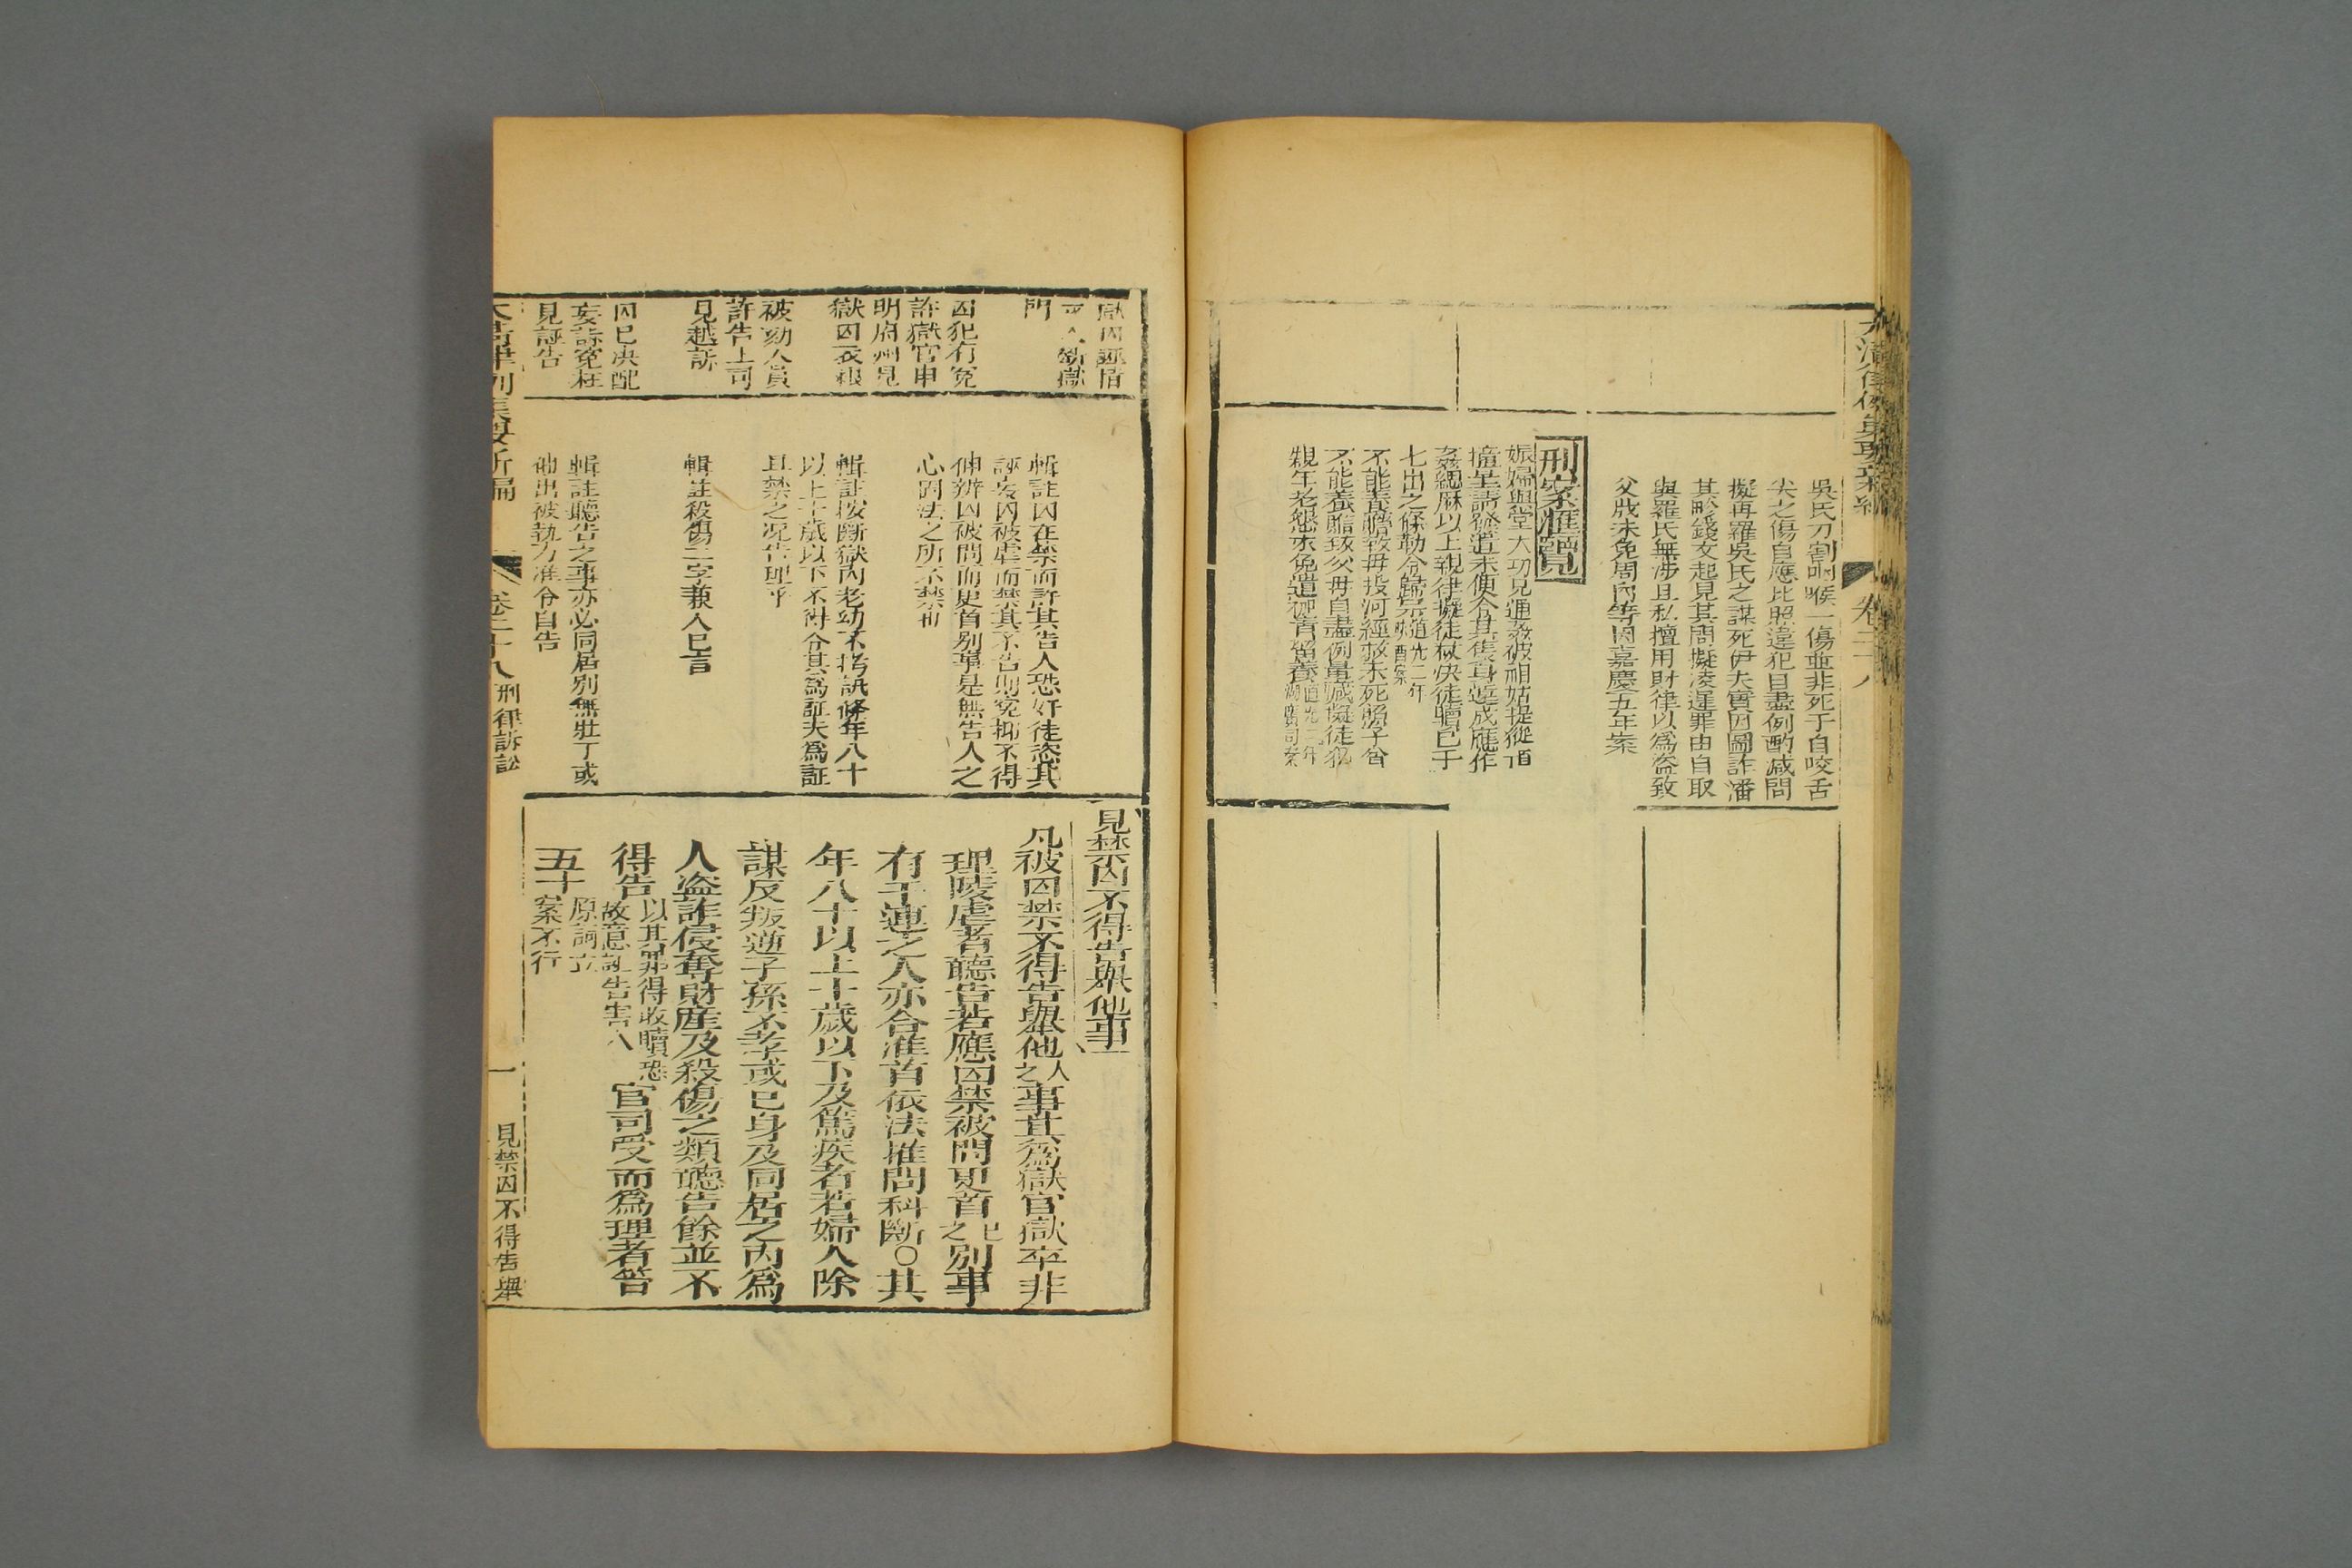 吳氏刀割咽喉一傷並非死于自咬舌
尖之傷自應比照違犯自盡例酌減問
擬再羅吳氏之謀死伊夫實因圖詐潘
其畝錢文起見其問擬凌遲罪由自取
與羅氏無涉且私擅用財律以為盜致
父戕未免周內等因嘉慶五年案
刑案滙覽
娠婦與堂大功兄通姦被祖姑捉獲
撞呈請發遣未便令其隻身遠戍應作
姦緦麻以上親律擬徒杖決徒贖已于
七出之條勒令歸宗道光二年
不能養贍致母投河經救未死照子貧
不能養贍致父母自盡例量減擬徒犯
親年老懇求免遣枷責留養道光二年
卷二十八
獄囚誣指
平人斷獄
門
囚犯有冤
許獄官申
明府州見
獄囚衣糧
被劾人員
許告上司
見越訴
囚已決配
妄訴冤枉
見誣告
輯註囚在禁而許其告人恐奸徒恣其
誣妄囚被虐而禁其不告則冤抑不得
伸辦囚被問而更首別事是無告人之
心固法之所不禁也
輯註按斷獄內老幼不拷訊條年八十
以上十歲以下不得令其為証夫為証
且禁之况告理乎
輯註殺傷二字兼人已言
輯註聽告之事亦必同居別無壯丁或
他出被執方准令自告
見禁囚不得告舉他事
凡被囚禁不得告舉他人之事其為獄官獄卒非
理陵虐者聽告若應囚禁被問更首己之別事
有干連之人亦合准首依法推問科斷〇其
年八十以上十歲以下及篤疾者若婦人除
謀反叛逆子孫不孝或己身及同居之內為
人盗詐侵奪財産及殺傷之類聽告餘並不
得告以其罪得收贖恐故意誣告害人官司受而為理者笞
五十原詞立案不行
大清律例集要新編
卷二十八
刑律訴訟
一
見禁囚不得告舉